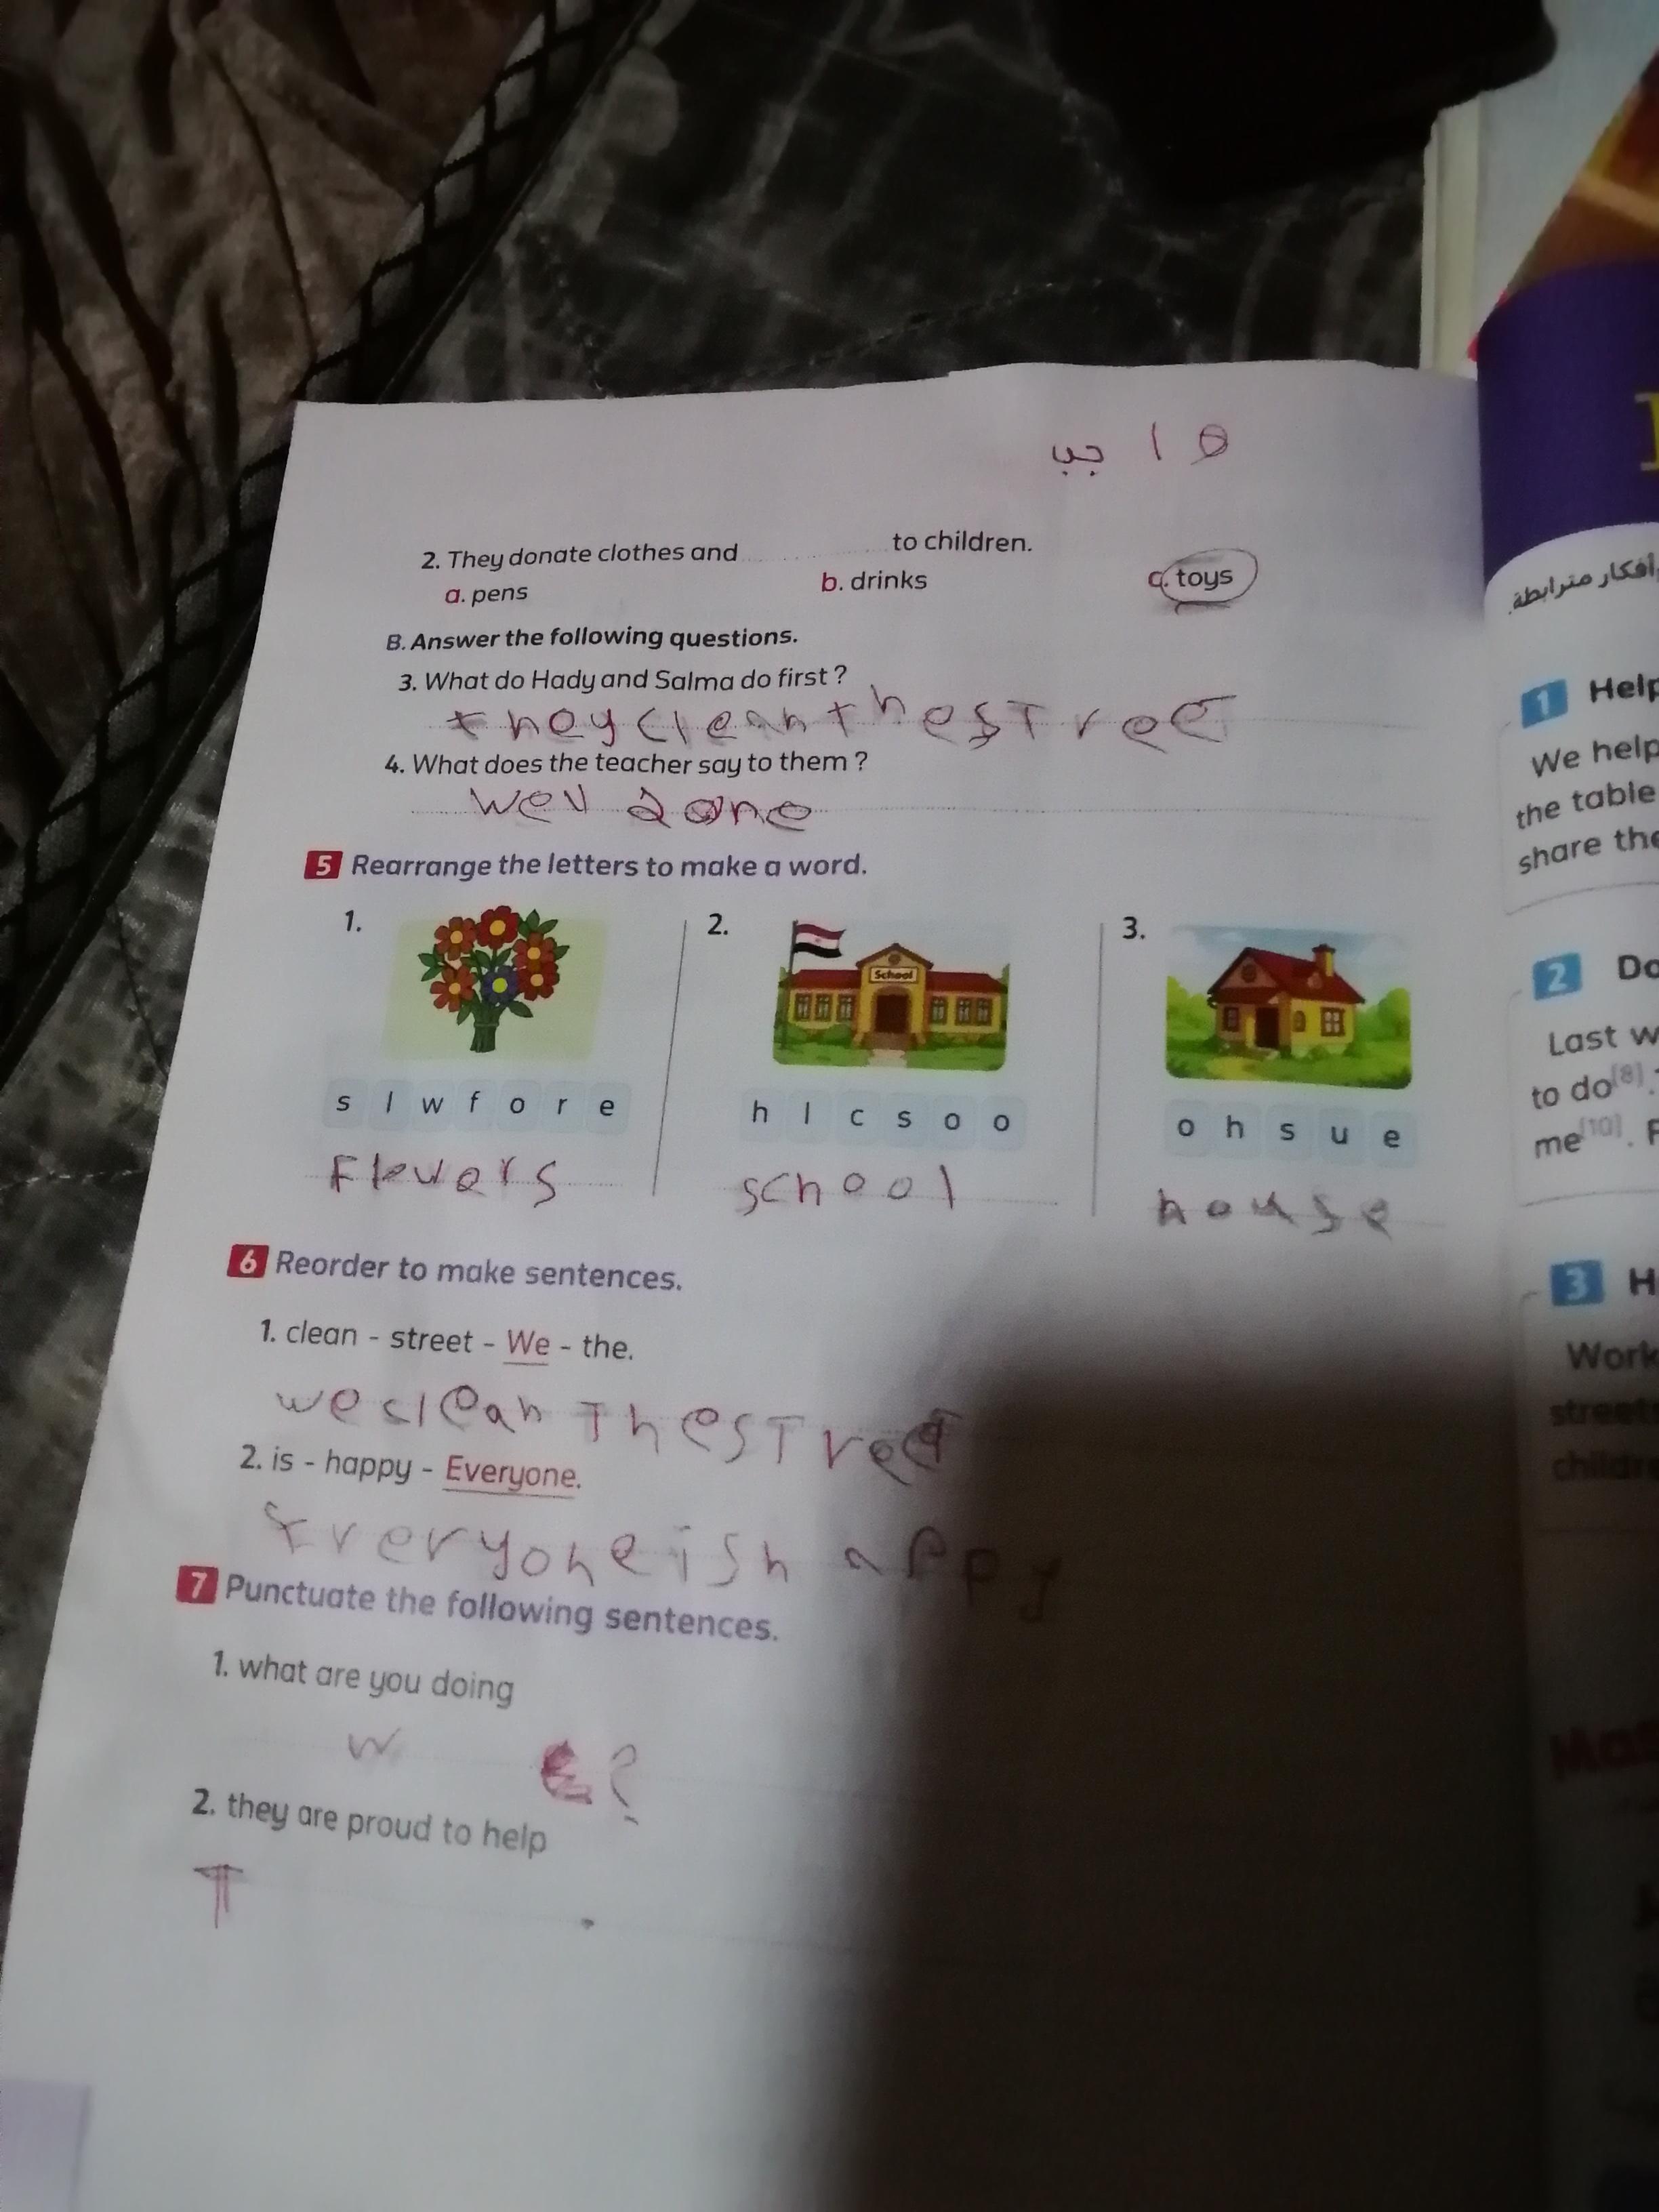 واجب
2. They donate clothes and ............ to children.
a. pens b. drinks c. toys
B. Answer the following questions.
3. What do Hady and Salma do first ?
they clean the sTreeT
4. What does the teacher say to them ?
well done
5 Rearrange the letters to make a word.
1. 2. 3.
School
s l w f o r e
h l c s o o
o h s u e
Flowers
school
house
6 Reorder to make sentences.
1. clean - street - We - the.
we clean The sTreeT
2. is - happy - Everyone.
Everyone is happy
7 Punctuate the following sentences.
1. what are you doing
W ?
2. they are proud to help
T .
أفكار مترابطة.
1 Help
We help
the table
share the
2 Do
Last w
to do[8].
me[10].
3 H
Work
street
childre